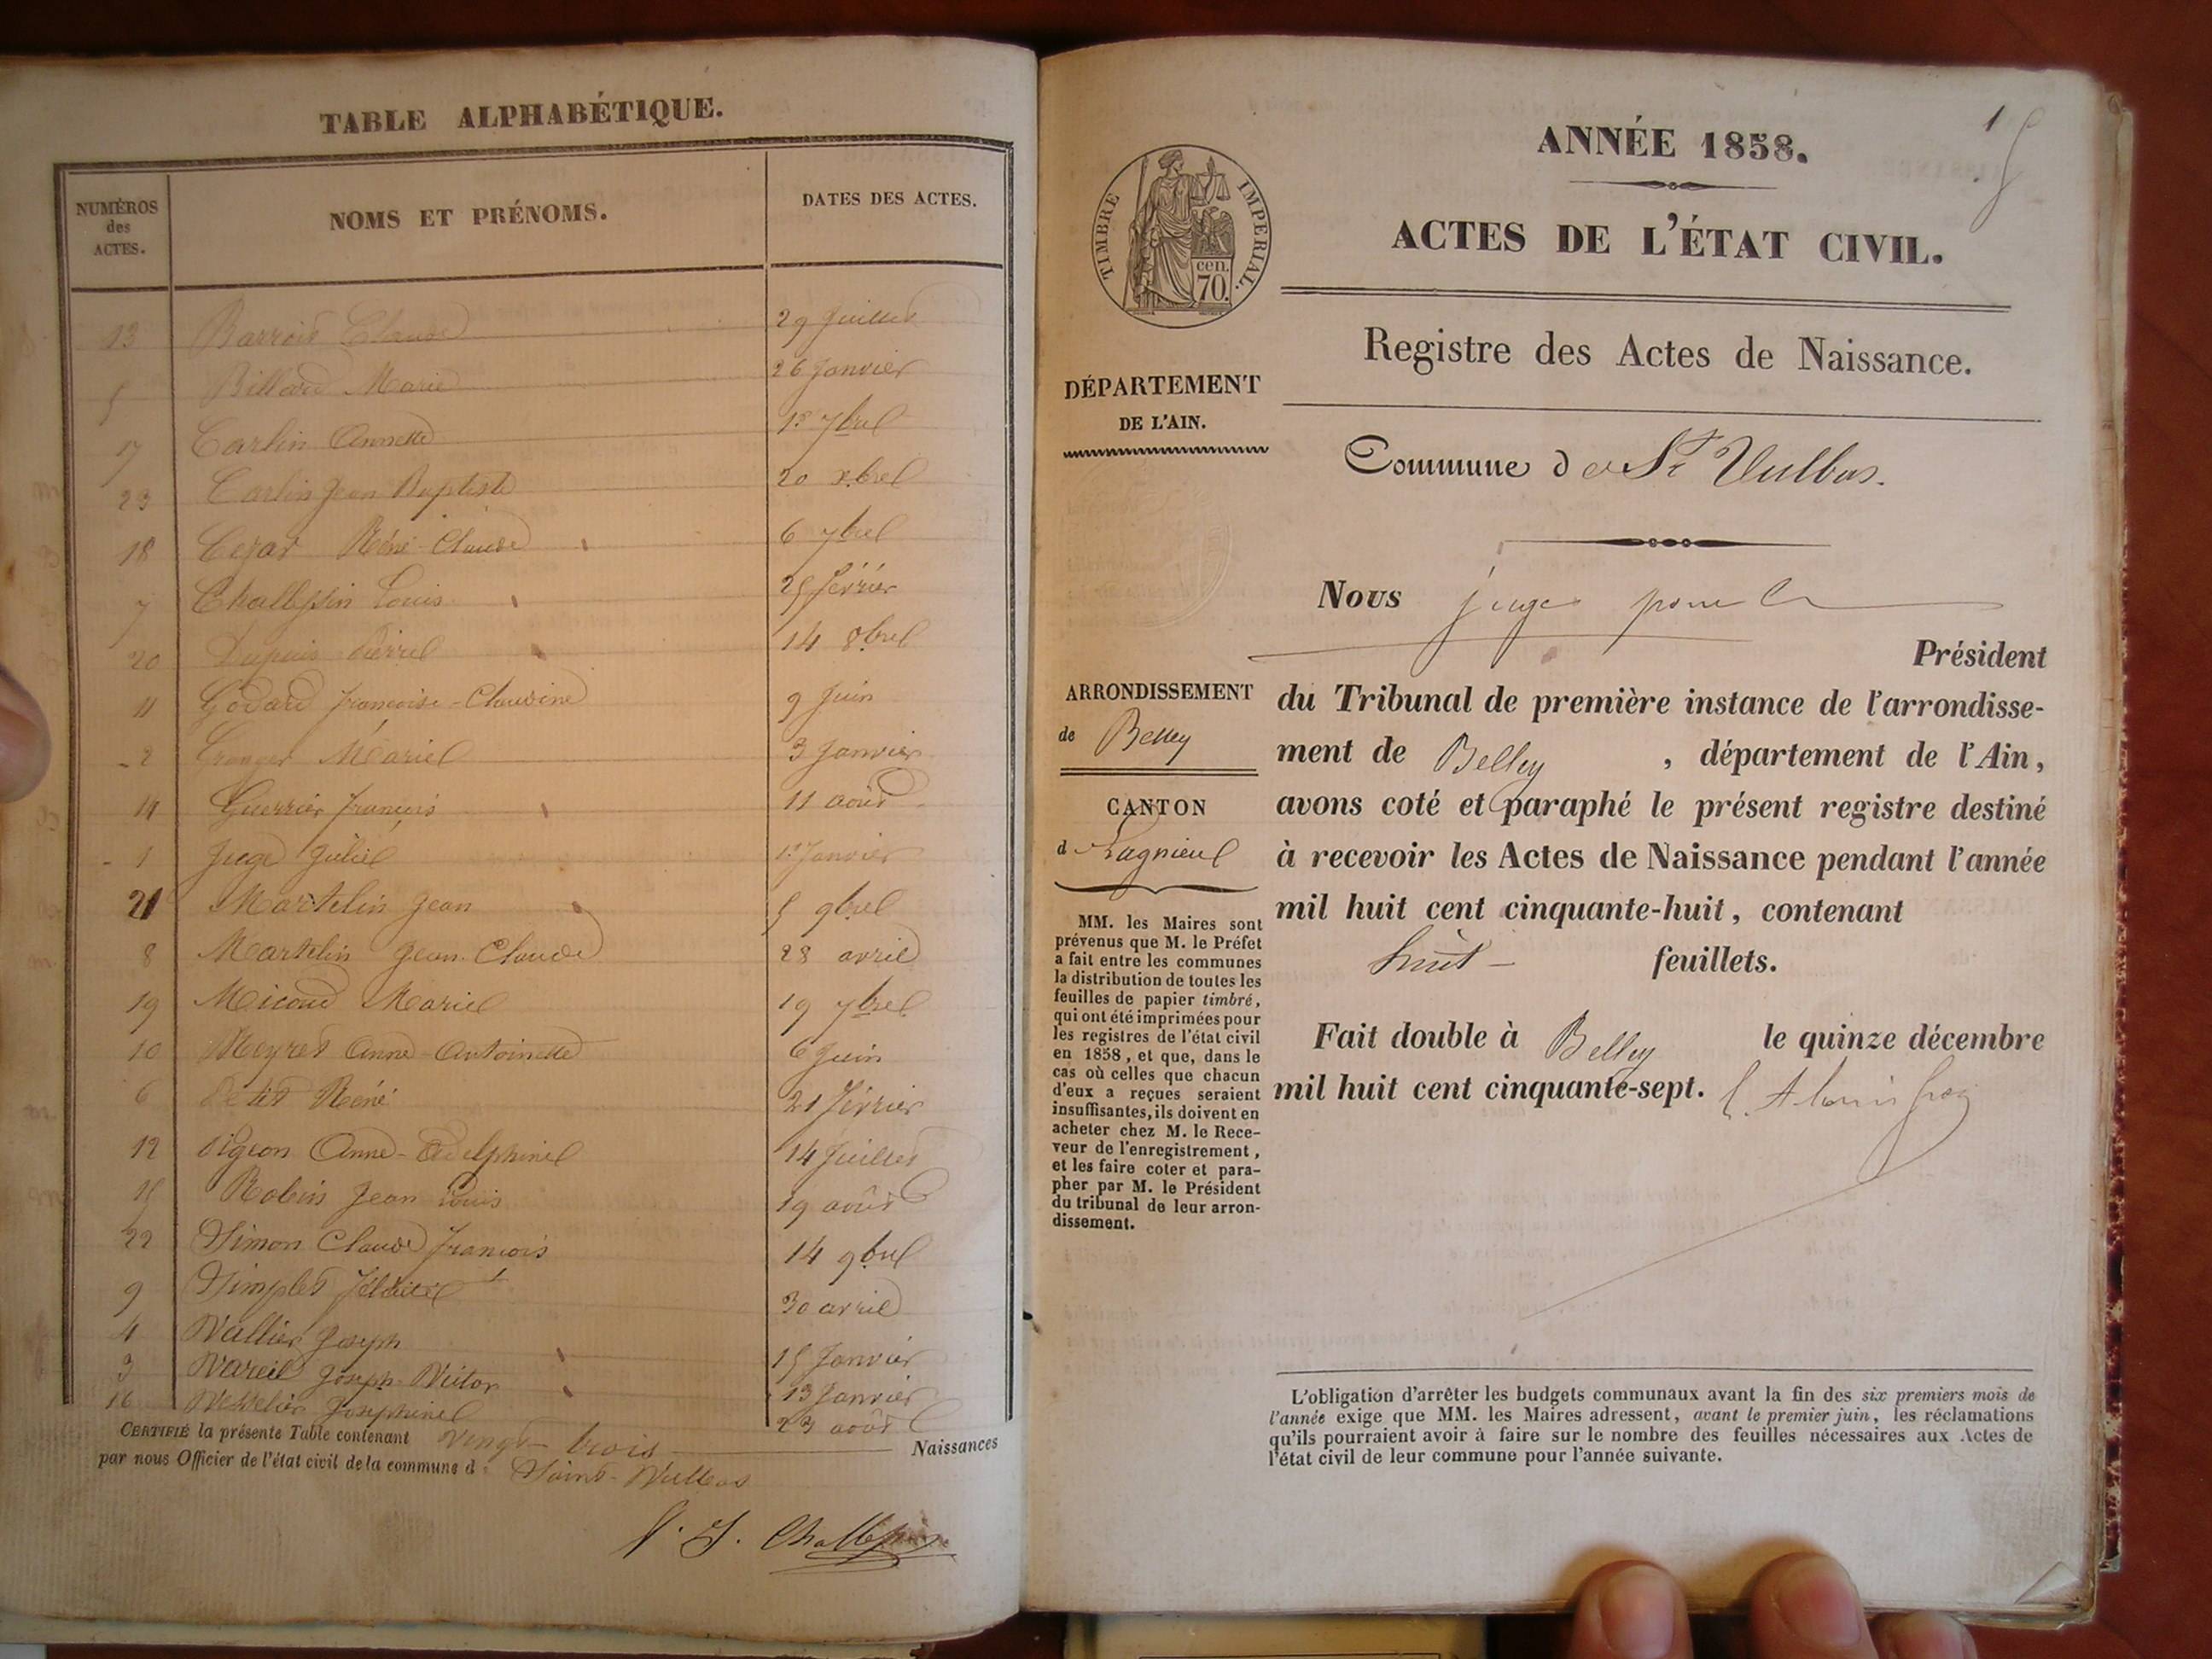 TABLE ALPHABÉTIQUE.
NUMÉROS
des
ACTES.
NOMS ET PRÉNOMS.
DATES DES ACTES.
13 Barroid Claude 29 Juillet
5 Billard Marie 26 Janvier
17 Carlin Annette 1er 7bre
23 Carlin Jean Baptiste 20 xbre
18 Cezar Réné-Claude 6 7bre
7 Challessin Louis 25 février
20 Dupuis Pierre 14 8bre
11 Godard françoise-Claudine 9 Juin
2 Granger Marie 3 Janvier
14 Guerrier françois 11 août
1 Juge Julie 1er Janvier
21 Martelin Jean 5 9bre
8 Martelin Jean-Claude 28 avril
19 Micoud Marie 19 7bre
10 Neyret Anne-Antoinette 6 Juin
6 Petit Réné 21 février
12 Pigeon Anne-Adelphine 14 Juillet
15 Robin Jean Louis 19 août
22 Simon Claude françois 14 9bre
9 Simplet félicité 30 avril
4 Vallier Joseph 15 Janvier
3 Vareil Joseph-Victor 13 Janvier
16 Josephine 23 août
CERTIFIÉ la présente Table contenant Vingt-trois Naissances
par nous Officier de l'état civil de la commune d Saint-Vulbas
Challessin
1
ANNÉE 1858.
ACTES DE L'ÉTAT CIVIL.
TIMBRE IMPERIAL.
cen.
70.
Registre des Actes de Naissance.
DÉPARTEMENT
DE L'AIN.
Commune de St Vulbas.
Nous juge pour le
Président
ARRONDISSEMENT
de Belley
CANTON
d Lagnieu
du Tribunal de première instance de l'arrondisse-
ment de Belley, département de l'Ain,
avons coté et paraphé le présent registre destiné
à recevoir les Actes de Naissance pendant l'année
mil huit cent cinquante-huit, contenant
huit feuillets.
MM. les Maires sont
prévenus que M. le Préfet
a fait entre les communes
la distribution de toutes les
feuilles de papier timbré,
qui ont été imprimées pour
les registres de l'état civil
en 1858, et que, dans le
cas où celles que chacun
d'eux a reçues seraient
insuffisantes, ils doivent en
acheter chez M. le Rece-
veur de l'enregistrement,
et les faire coter et para-
pher par M. le Président
du tribunal de leur arron-
dissement.
Fait double à Belley le quinze décembre
mil huit cent cinquante-sept.
L'obligation d'arrêter les budgets communaux avant la fin des six premiers mois de
l'année exige que MM. les Maires adressent, avant le premier juin, les réclamations
qu'ils pourraient avoir à faire sur le nombre des feuilles nécessaires aux Actes de
l'état civil de leur commune pour l'année suivante.